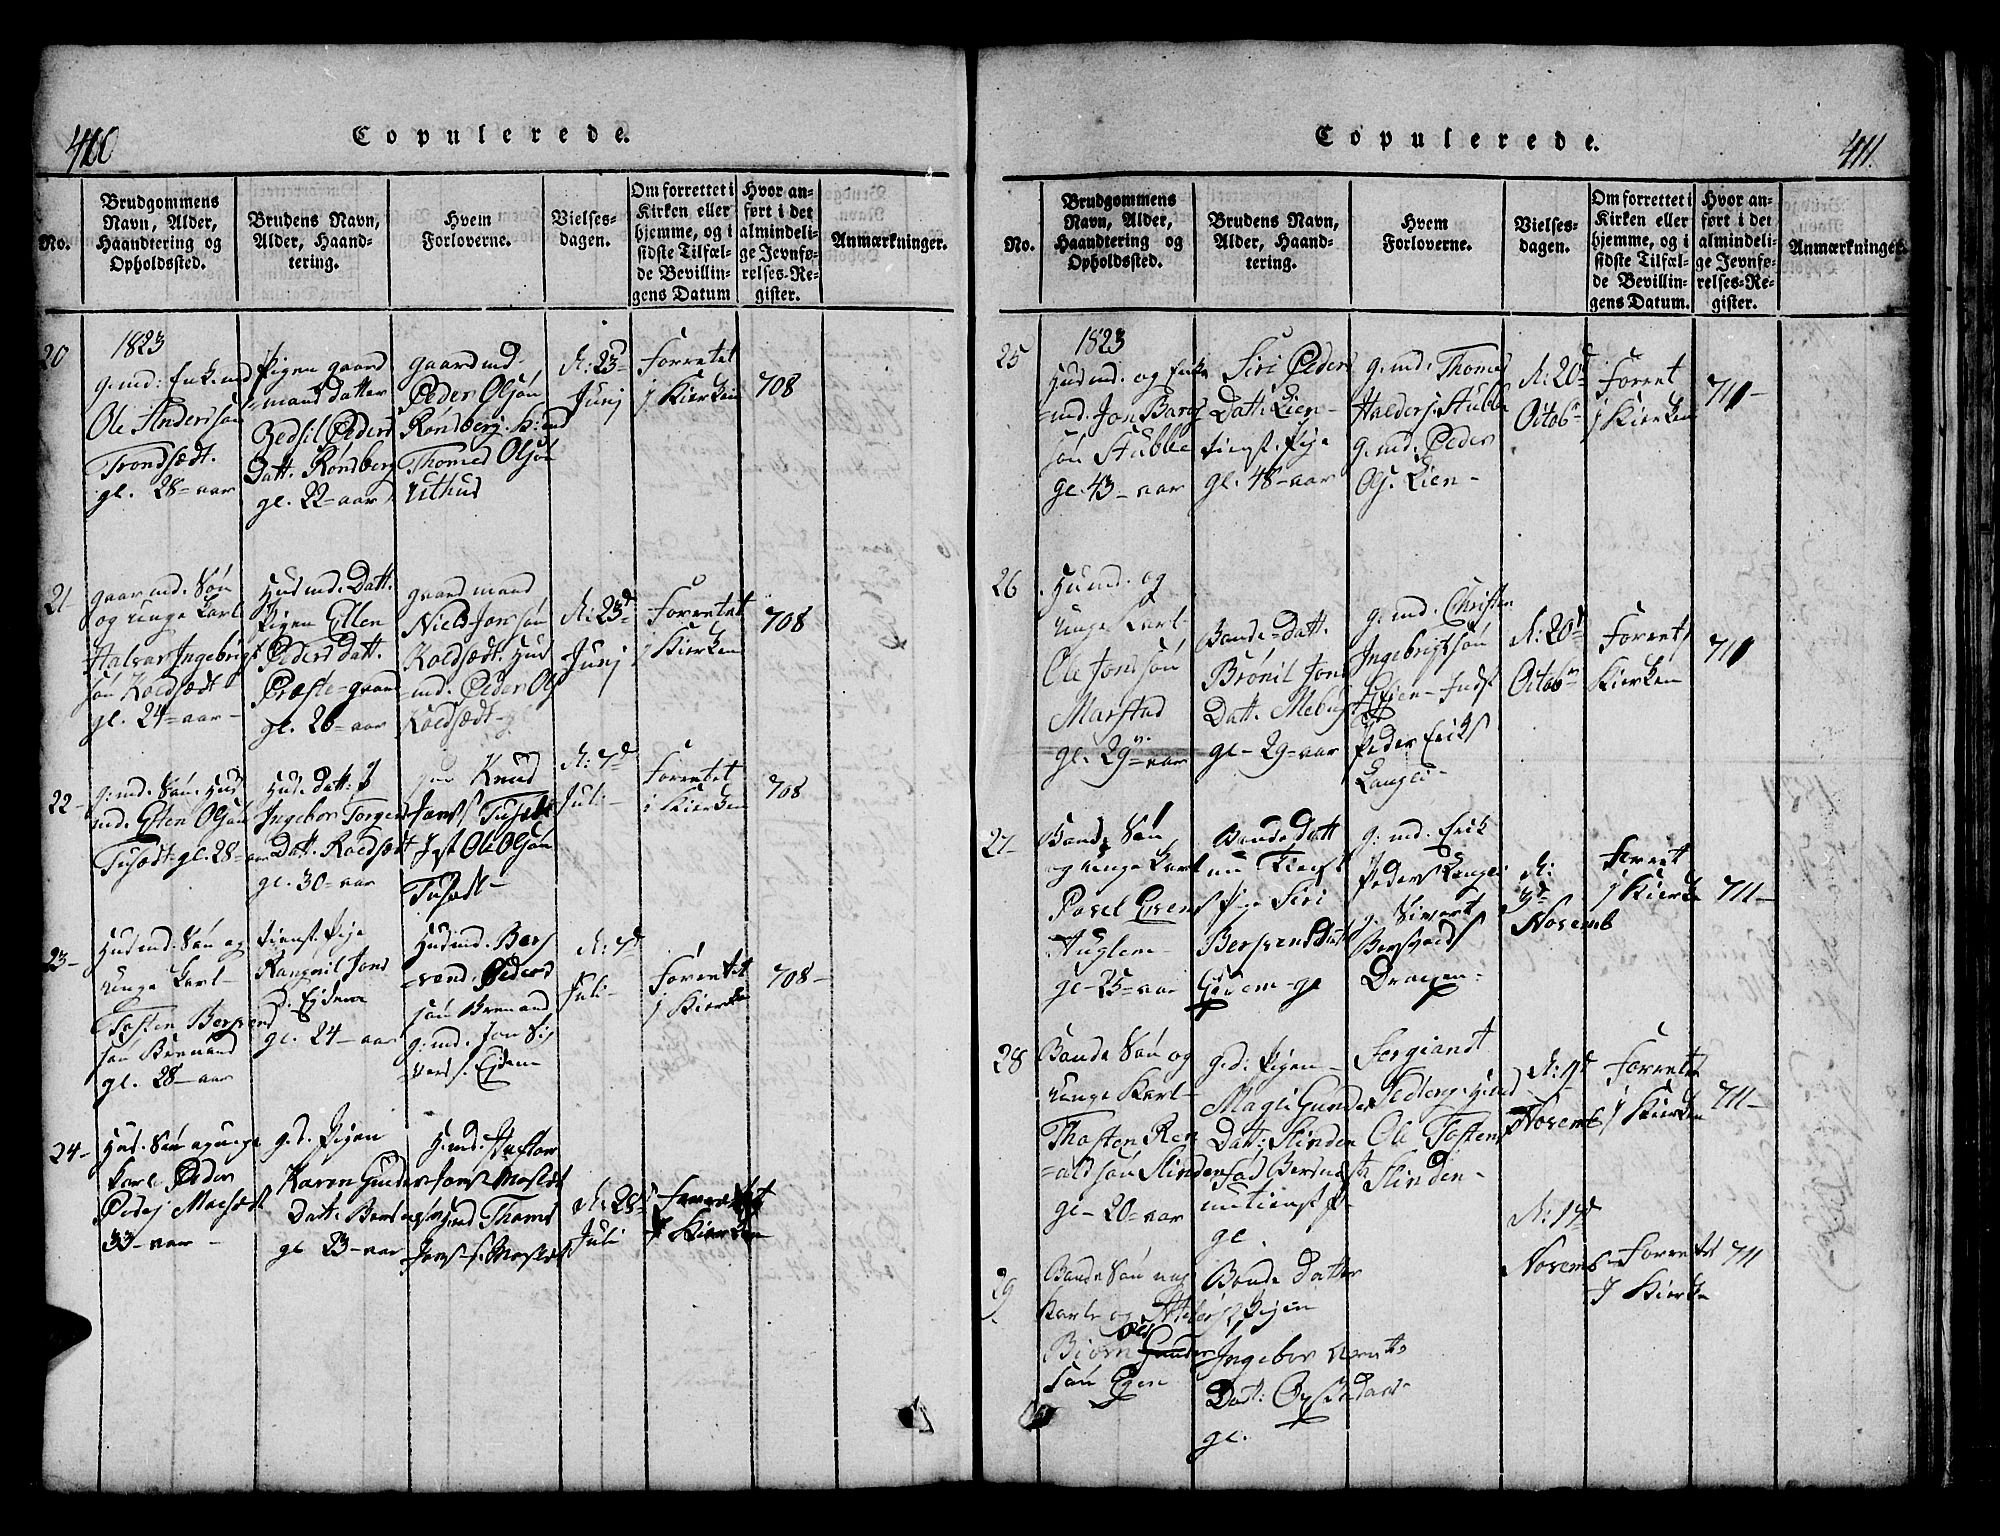 410
Copulerede.
No.
Brudgommens
Navn, Alder,
Haandtering og
Opholdssted.
Brudens Navn,
Alder, Haand-
tering.
Hvem
Forloverne.
Vielses-
dagen.
Om forrettet i
Kirken eller
hjemme, og i
sidste Tilfæl-
de Bevillin-
gens Datum
Hvor an-
ført i det
almindeli-
ge Jevnfø-
relses-Re-
gister.
Anmærkninger.
20
1823
g: md: Enkemd
Ole Anderssøn
Trondsædt.
gl. 28-aar
Pigen gaard
=mand datter
Zedsil Peders
Datt. Rønsberg
gl. 22-aar
gaard md
Peder Olsøn
Rønsberg. H: md
Thomas Olsøn
Uthus
d: 23d
Junj
Forrettet
j Kierken
708
21
gaar md. Søn
og unge karl
Halvar Ingebrigt
søn Koldsædt
gl. 24=aar-
Hus md. Datt.
Pigen Ellen
Peders datt.
Præste=gaard
gl. 26-aar
gaard mand
Niels Jonssøn
Koldsædt. Hus
md. Peder Ols
Koldsædt-
d: 23d
Junj
Forrettet
j Kierken
708
22-
g: md. Søn. Hus
md. Esten Olsøn
Tusædt gl. 28-aar
Hus. datt: P
Ingebor Torgers
Datt. Koldsædt
gl. 30-aar
Knud
Jonss Tusædt
Ole Olsøn
Tusædt-
d: 7d
Juli-
Forrettet
i Kierken
708
23-
Hus md. Søn og
unge karl-
Tosten Bersvend
søn Brenand
gl. 28-aar
tienst. Pige
Rangnil Jons
d. Ejdem
gl. 24-aar
Husmd. Bers
=vend Peders
søn Brenand
g: md. Jon Si
vers. Ejdem
d: 7d
Juli-
Forrettet
j Kierke
708-
24-
Hus. Søn og unge
karl Peder
Pedes Mosædt
33-aar-
g. d. Pigen
Karen Gunders
Datt: Bers
gl 23-aar
H: md:
Jons Moslet
Thoms
Jons
d: 28d
Juli
Forrettet
j Kierken
Copulerede.
411.
No.
Brudgommens
Navn, Alder,
Haandtering og
Opholdssted.
Brudens Navn,
Alder, Haand-
tering.
Hvem
Forloverne.
Vielses-
dagen.
Om forrettet i
Kirken eller
hjemme, og i
sidste Tilfæl-
de Bevillin-
gens Datum.
Hvor an-
ført i det
almindeli-
ge Jevnfø-
relses-Re-
gister.
Anmærkninger.
25
1823
Hus md. og Enke
=md. Jon Bars
søn Stubbe
gl. 43-aar
Siri Peders
Datt: Lien-
tienst. Pige
gl. 48-aar
g: md. Thomas
Halders. Stubbe
g: md. Peder
Ols. Lien-
d: 20d
Octobr
Forret
j Kierken
711-
26
Hus md. og
unge karl-
Ole Jonssøn
Marstad
gl. 29-aar
Bonde=datt.
Brønil Jons
Datt. Mebust
gl-29-aar
g: md. Christen
Ingebrigtsøn
Peder Eriks
Langli-
d: 20d
Octobr
Forret j
Kierken
711
27-
Bonde Søn
og unge karl
Povel Evens
Auglem-
gl-25=aar
Bonde datt
nu tienst
Pige Siri
Bersvends datt
gl
g: md. Erik
Peders Langli
g. Sivert
Bersvends
Dragen-
d:
3d
Novemb
Forret
j Kierke
711-
28
Bonde Søn og
unge karl-
Thosten Ren
=aldsøn Slinden
gl-20=aar
g. d. Pigen-
Magli Gunder
Datt: Slinden
nu tienst P-
gl.
Sergiandt
Sedberg. Hus md
Ole Tostens
Slinden-
d: 9d
Novemb
Forret
j Kierken
711-
29
Bonde Søn ung
karl og
Biørn
søn Egen
Bonde datter
Pigen
Ingebor
Datt:
gl.
d: 14d
Novemb
Forrettet
J Kierke
711